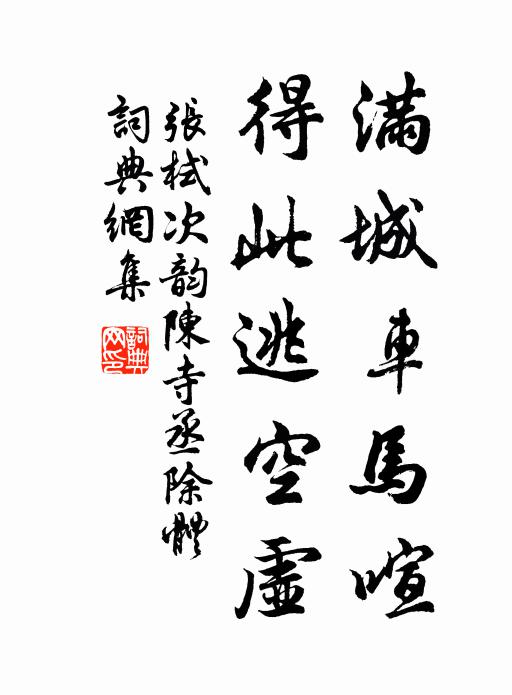 滿城車馬喧
得此逃空虛
張栻次韵陳寺丞除體
詞典網集
詞典
网印